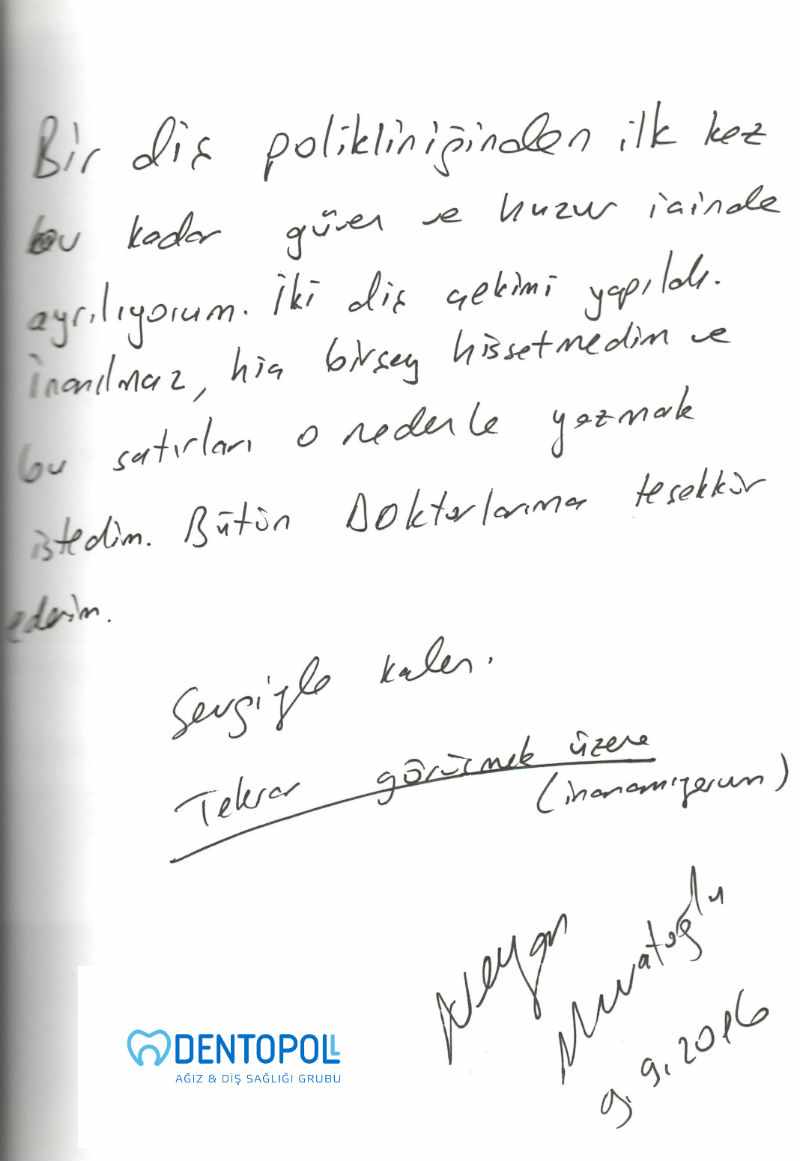 Bir diş polikliniğinden ilk kez
bu kadar güven ve huzur içinde
ayrılıyorum. İki diş çekimi yapıldı.
İnanılmaz, hiç birşey hissetmedim ve
bu satırları o nedenle yazmak
istedim. Bütün Doktorlarıma teşekkür
ederim.
Sevgiyle kalın.
Tekrar görüşmek üzere
(inanamıyorum)
Muratoğlu
9.9.2016
DENTOPOLL
AĞIZ & DİŞ SAĞLIĞI GRUBU